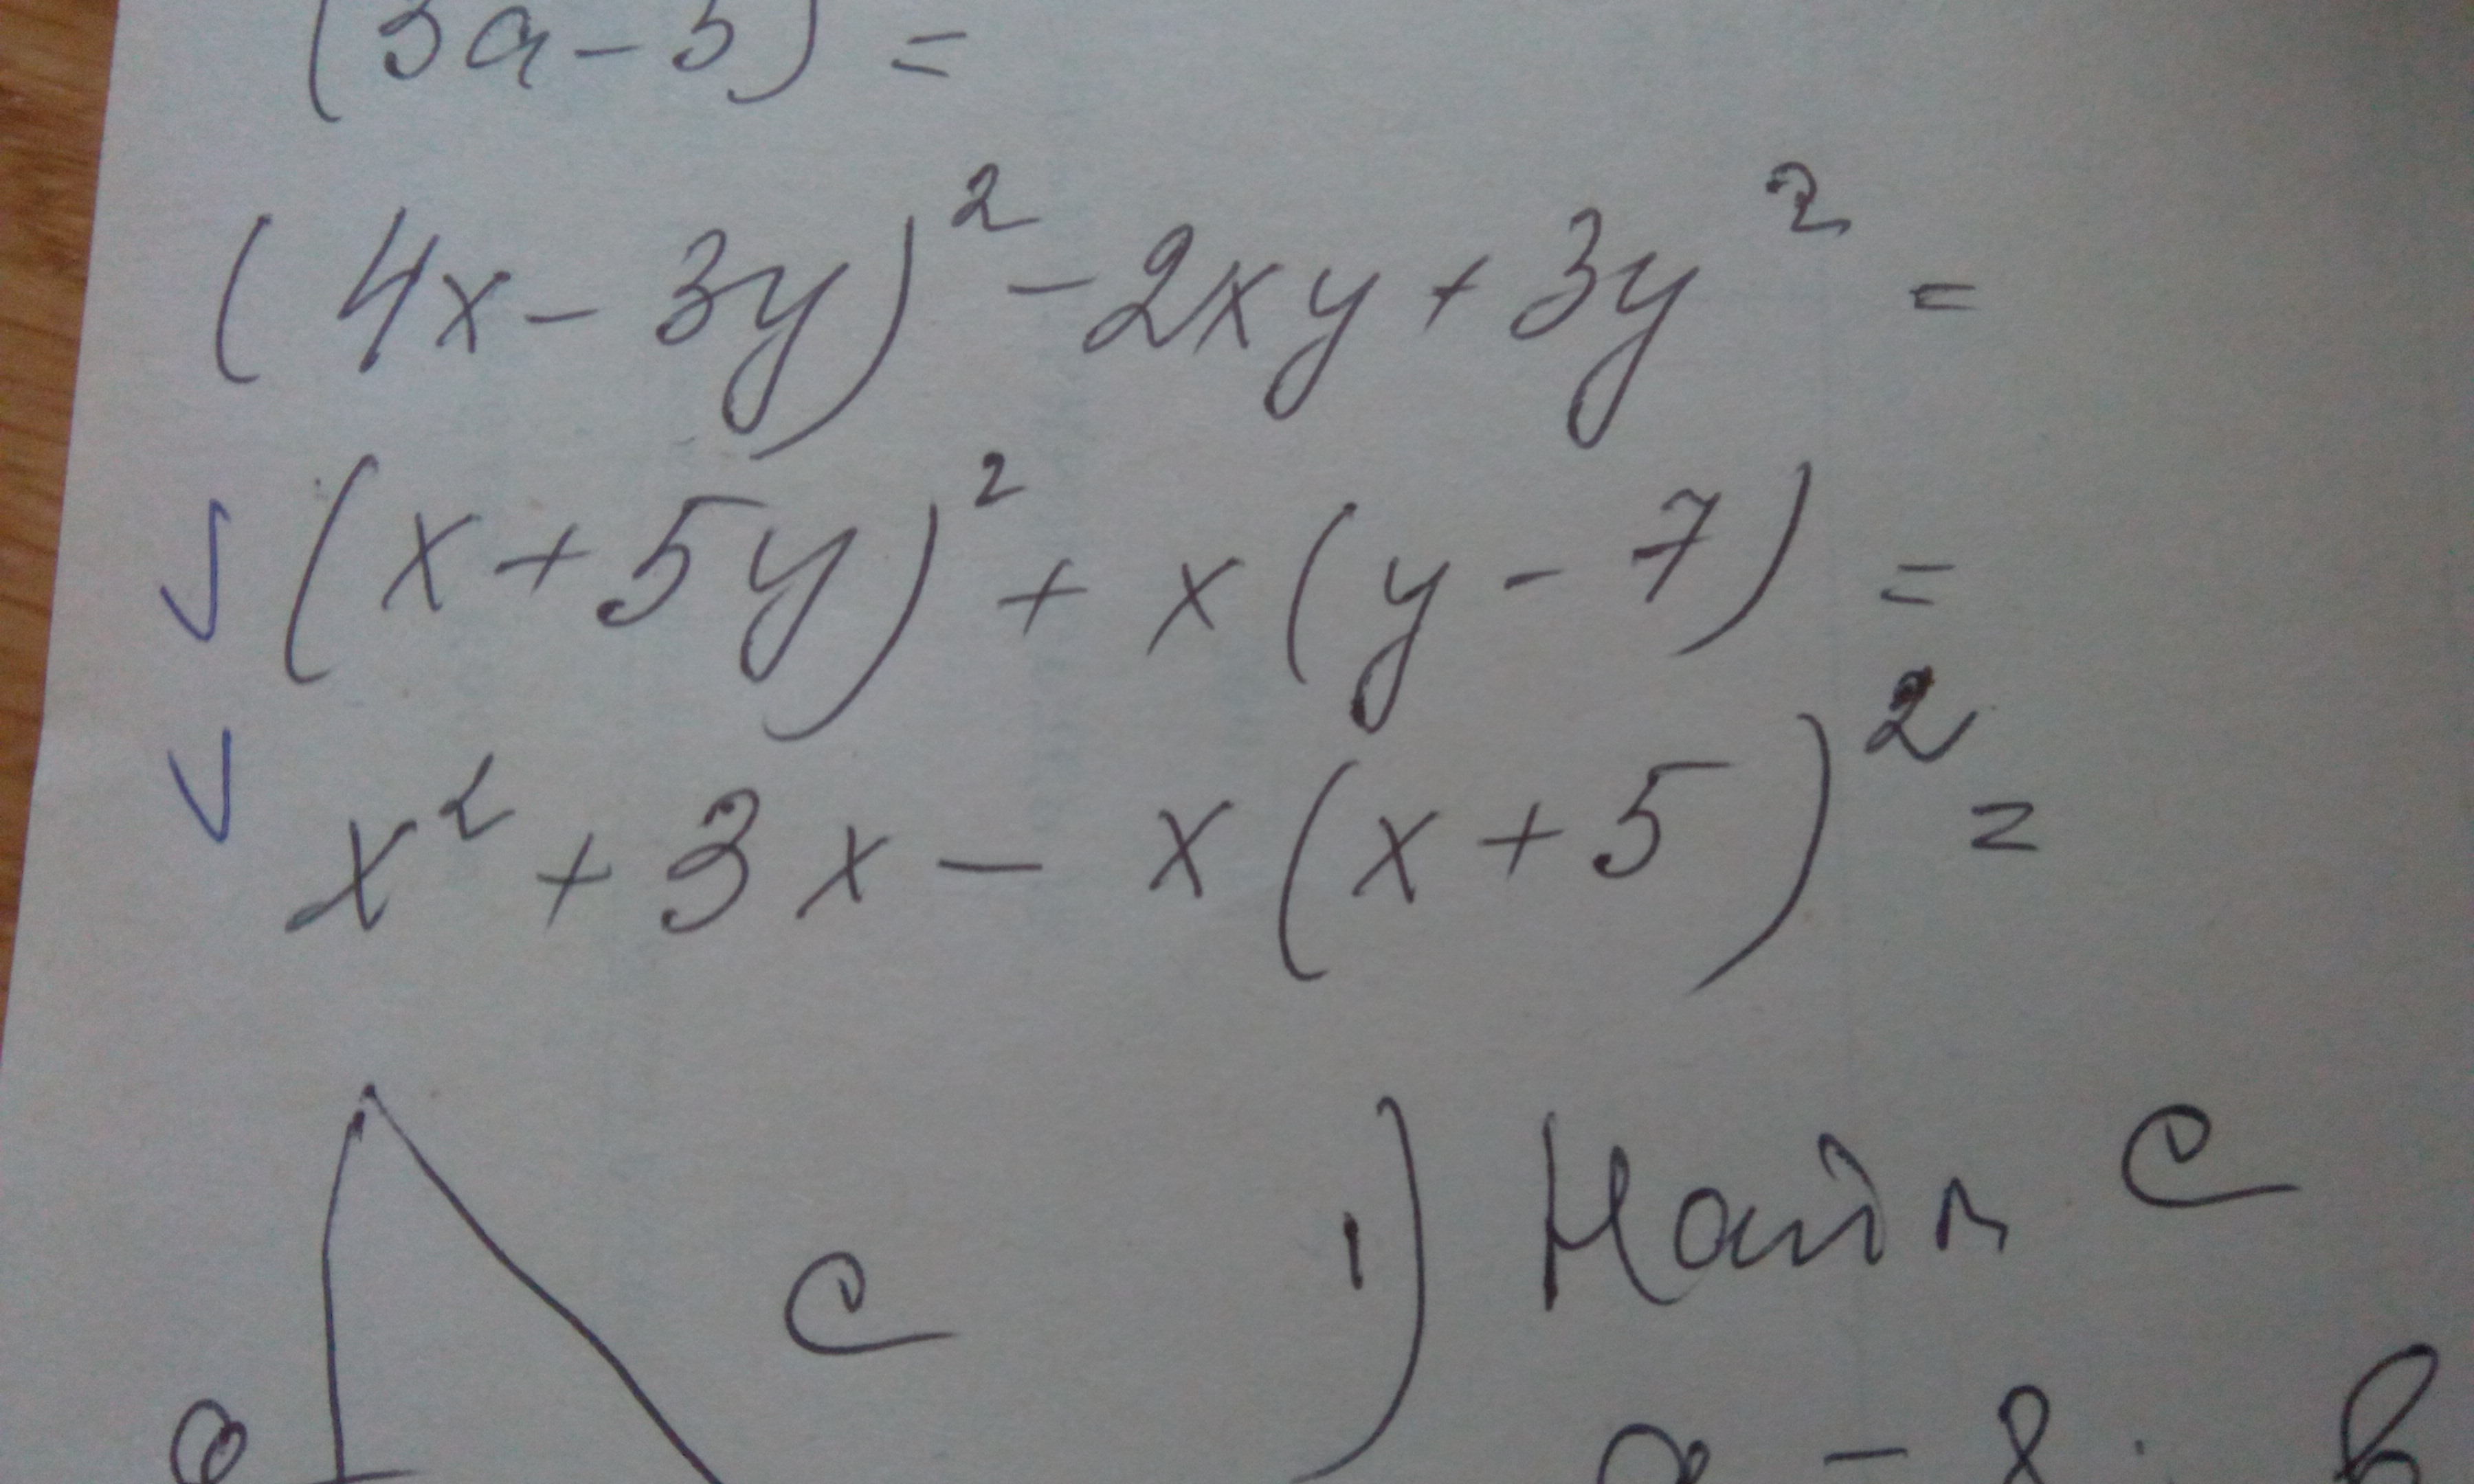 (3a-5) =
(4x-3y)² -2xy+3y² =
(x+5y)² + x(y-7) =
x² + 3x - x(x+5)² =
c 1) Найти c
a = 8;